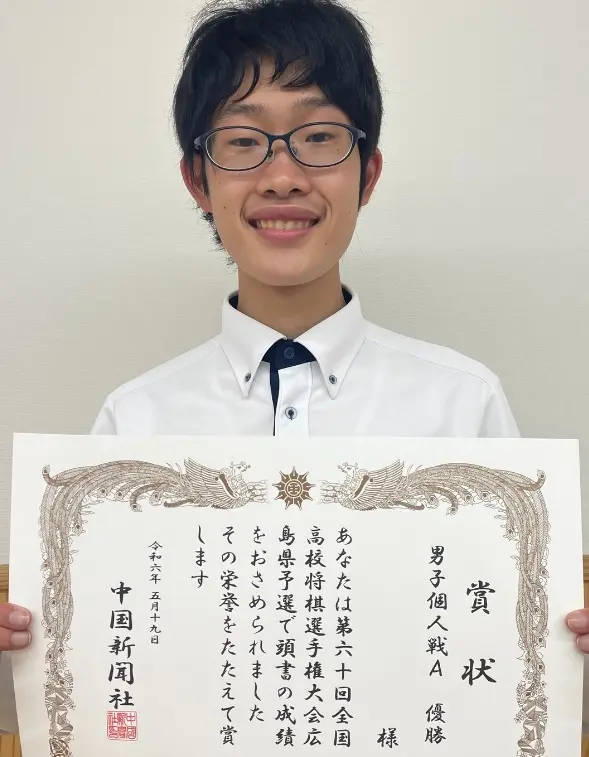 賞状
男子個人戦A 優勝
様
あなたは第六十回全国
高校将棋選手権大会広
島県予選で頭書の成績
をおさめられました
その栄誉をたたえて賞
します
令和六年 五月十九日
中国新聞社